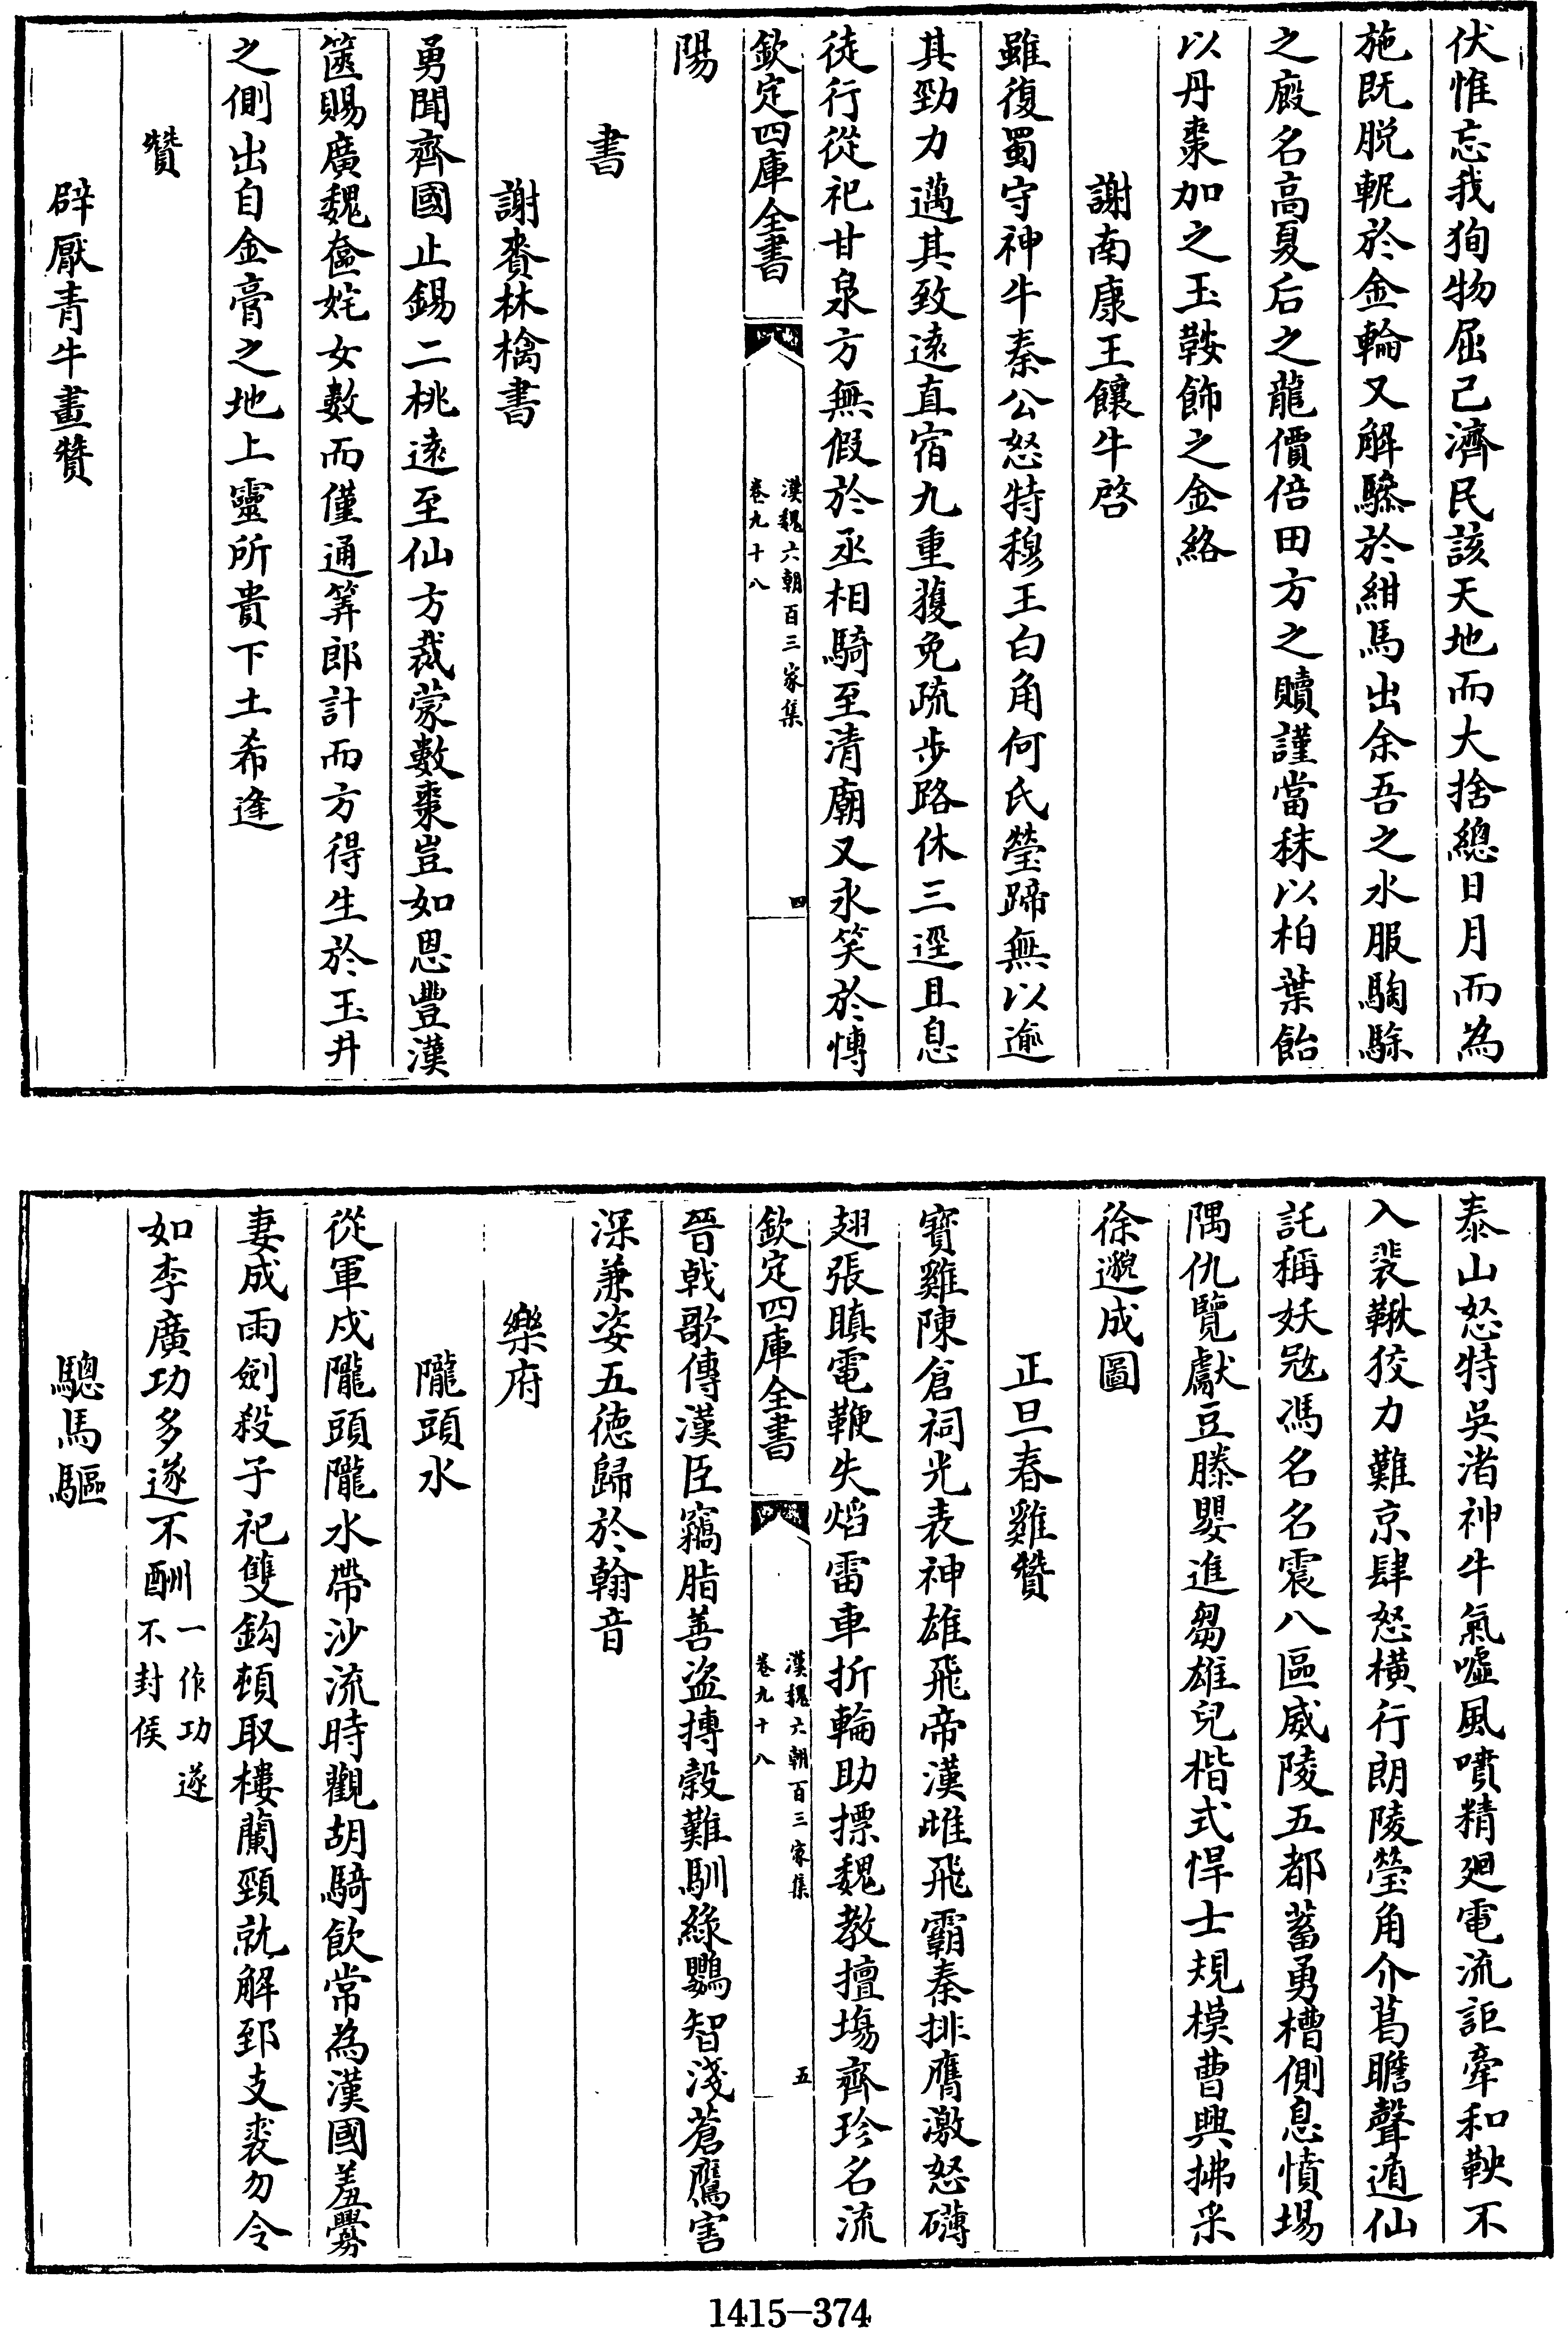 伏惟忘我狥物屈己濟民該天地而大捨總日月而為
施既脱軛於金輪又解驂於紺馬出余吾之水服騊駼
之廄名高夏后之龍價倍田方之贖謹當秣以柏葉飴
以丹棗加之玉鞍飾之金絡
謝南康王饟牛啓
雖復蜀守神牛秦公怒特穆王白角何氏瑩蹄無以逾
其勁力邁其致遠直宿九重獲免疏步路休三逕且息
徒行從祀甘泉方無假於丞相騎至清廟又永笑於博
欽定四庫全書
漢魏六朝百三家集
卷九十八
四
陽
書
謝賚林檎書
勇聞齊國止錫二桃遠至仙方裁蒙數棗豈如恩豐漢
篋賜廣魏奩姹女數而僅通筭郎計而方得生於玉井
之側出自金膏之地上靈所貴下土希逢
贊
辟厭青牛畫贊
泰山怒特吳渚神牛氣噓風噴精廻電流詎牽和鞅不
入裴鞦狡力難京肆怒横行朗陵瑩角介葛瞻聲遁仙
託稱妖冦馮名名震八區威陵五都蓄勇槽側息憤場
隅仇覽獻豆滕嬰進芻雄兒楷式悍士規模曹興拂采
徐邈成圖
正旦春雞贊
寳雞陳倉祠光表神雄飛帝漢雌飛霸秦排膺激怒礴
翅張瞋電鞭失熖雷車折輪助摽魏教擅塲齊珍名流
欽定四庫全書
漢魏六朝百三家集
卷九十八
五
晉戟歌傳漢臣竊脂善盜摶榖難馴綠鸚智淺蒼鷹害
深兼姿五德歸於翰音
樂府
隴頭水
從軍戍隴頭隴水帶沙流時觀胡騎飲常為漢國羞釁
妻成雨劍殺子祀雙鈎頓取樓蘭頸就解郅支裘勿令
如李廣功多遂不酬一作功遂不封侯
驄馬驅
1415-374